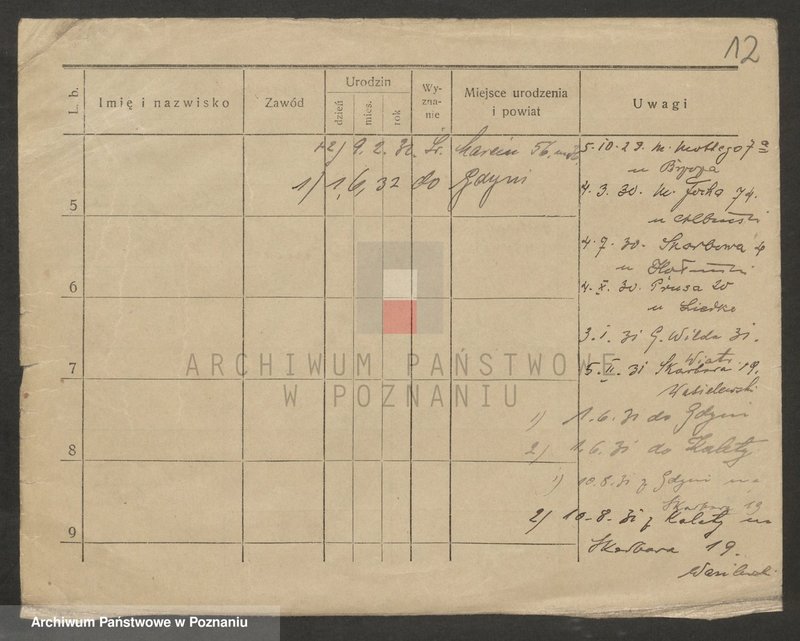 12
L. b.
Imię i nazwisko
Zawód
Urodzin
dzień
mies.
rok
Wy-
zna-
nie
Miejsce urodzenia
i powiat
Uwagi
1+2) 9. 2. 32. Św. Marcin 56,
1) 1, 6, 32 do Gdyni
5
6
7
8
9
5.10.29. M. Mottego 7a
u
4. 3. 30. M. Focha 74.
u
4. 7. 30. Skarbowa 4
u
4. X. 30. Prusa 20
u Liedke
3. I. 31 G. Wilda 31.
Wiatr
5. II. 31 Skarbowa 19.
Wasielewski
1) 1. 6. 31 do Gdyni
2) 1. 6. 31 do Kalety
1) 10. 8. 31 z Gdyni na
Skarbowa 19
2) 10-8. 31 z Kalety na
Skarbowa 19.
ARCHIWUM PAŃSTWOWE
W POZNANIU
Archiwum Państwowe w Poznaniu